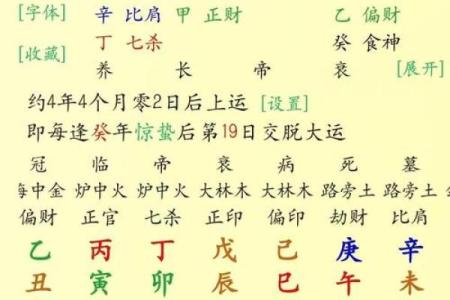 [字体] 辛 比肩 甲 正财 乙 偏财
[收藏] 丁 七杀 癸 食神
养 长 帝 衰 [展开]
约4年4个月零2日后上运 [设置]
即每逢癸年惊蛰后第19日交脱大运
冠 临 帝 衰 病 死 墓
海中金 炉中火 炉中火 大林木 大林木 路旁土 路旁土
偏财 正官 七杀 正印 偏印 劫财 比肩
乙 丙 丁 戊 己 庚 辛
丑 寅 卯 辰 巳 午 未